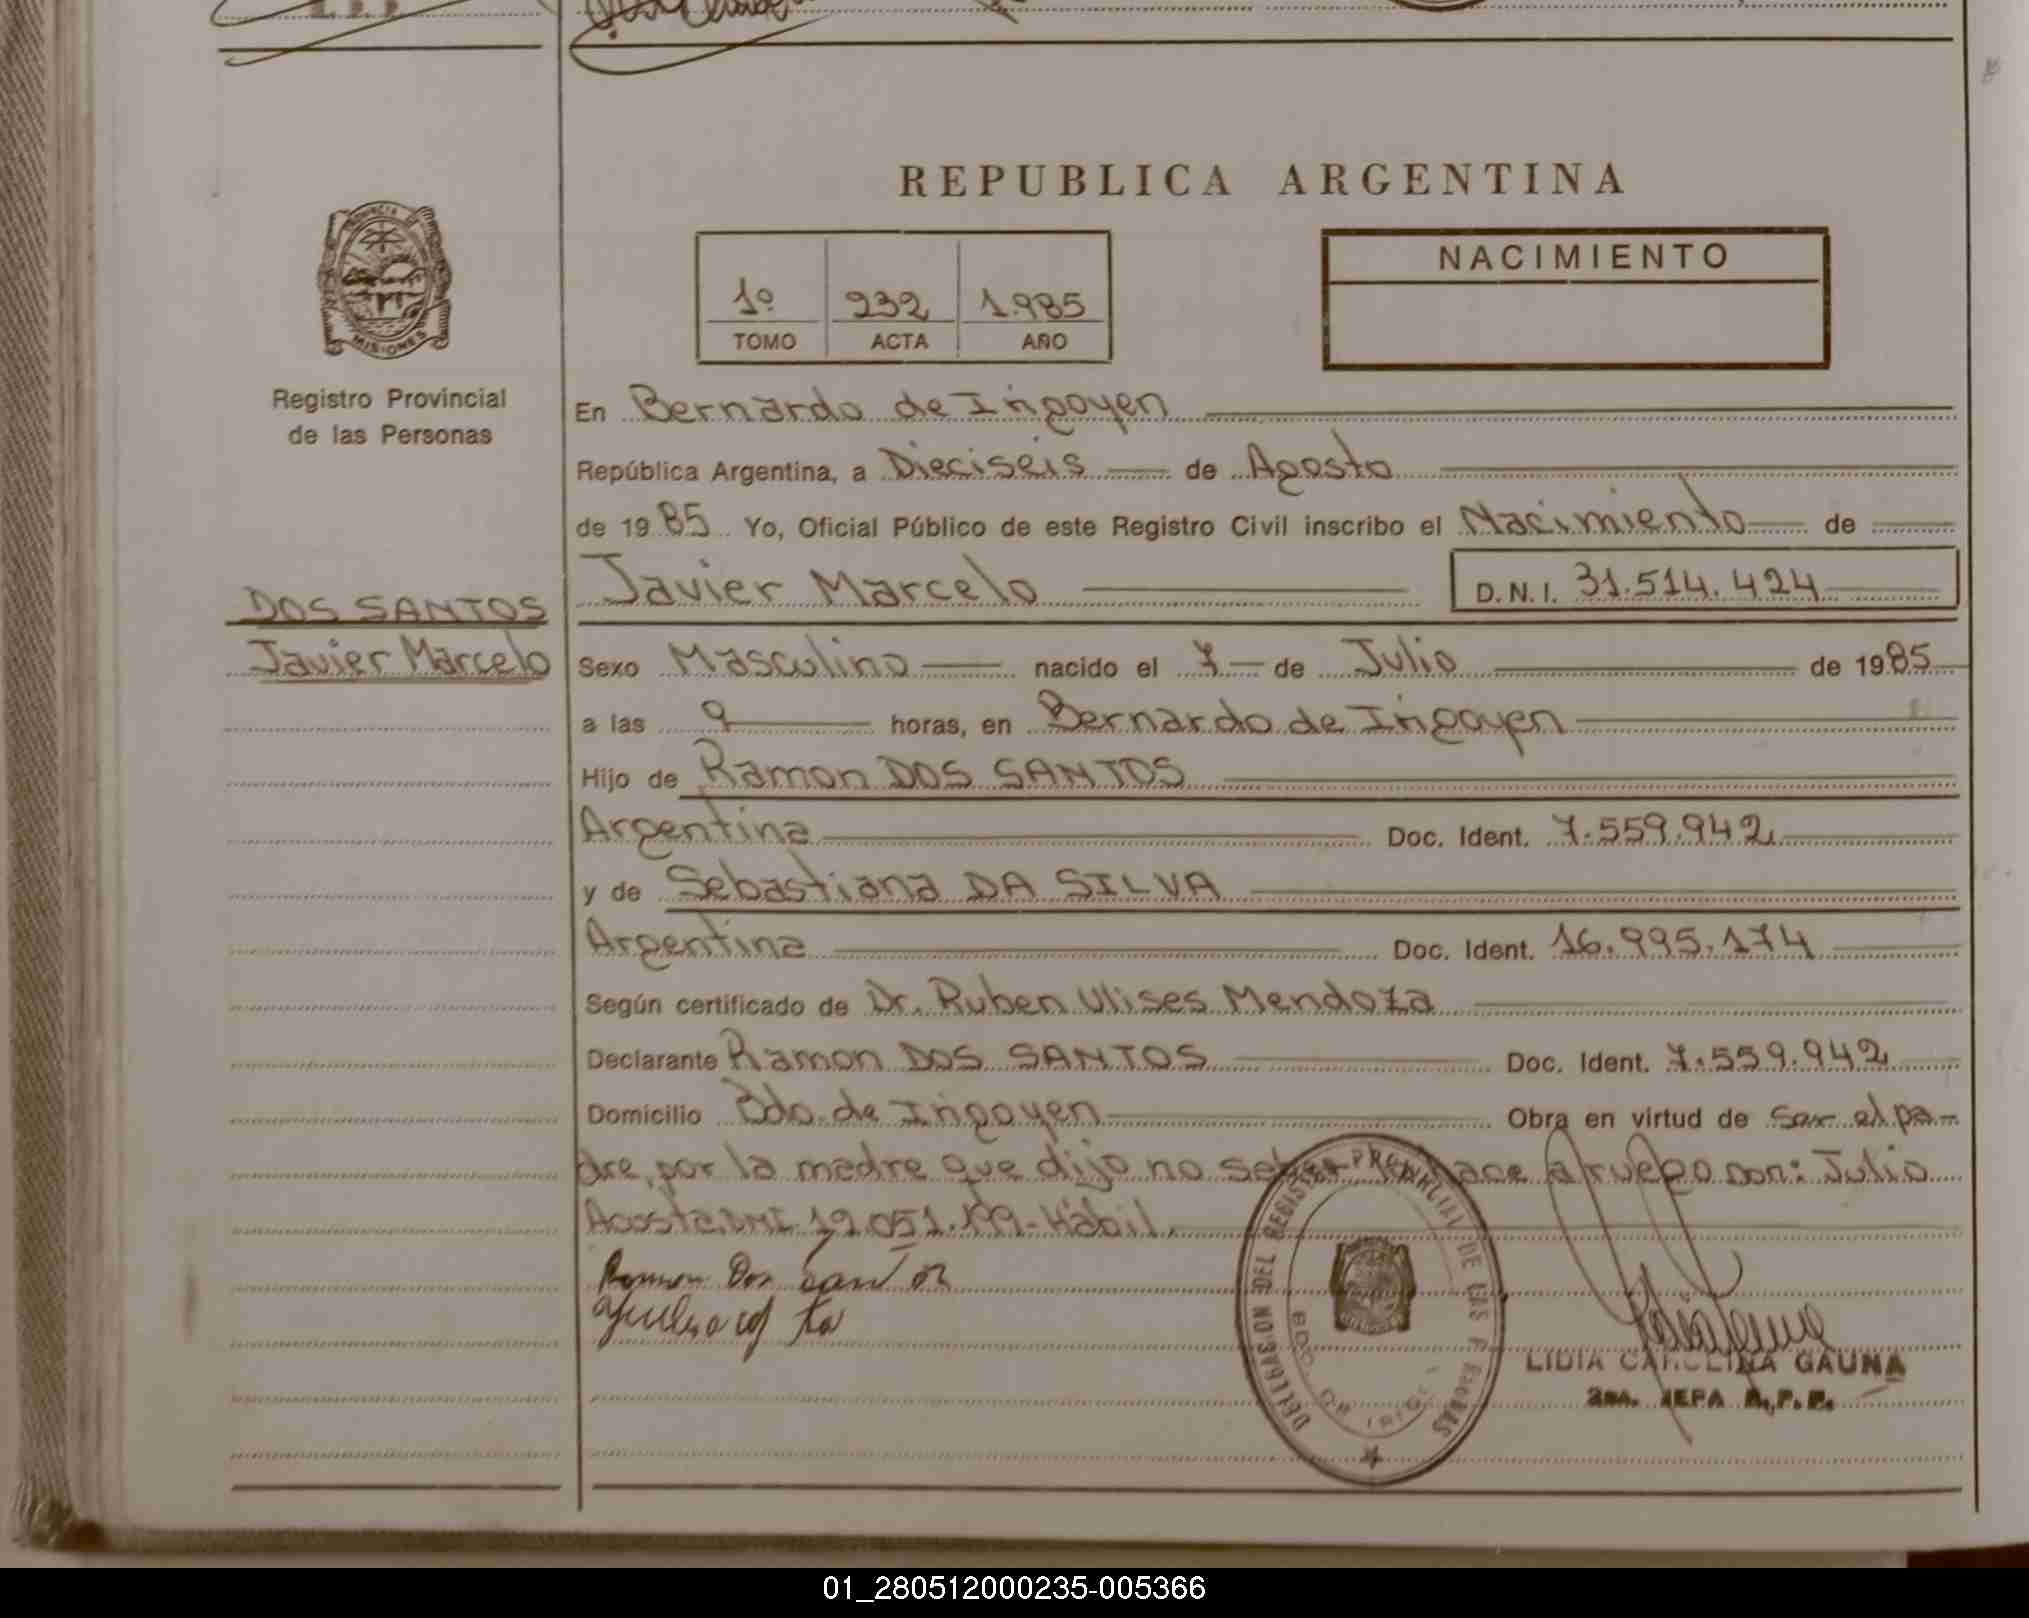 REPUBLICA ARGENTINA
PROVINCIA DE
MISIONES
Registro Provincial
de las Personas
1º 232 1.985
TOMO ACTA AÑO
NACIMIENTO
En Bernardo de Irigoyen
República Argentina, a Dieciséis de Agosto
de 1985 Yo, Oficial Público de este Registro Civil inscribo el Nacimiento de
DOS SANTOS
Javier Marcelo
Javier Marcelo D.N.I. 31.514.424
Sexo Masculino nacido el 7 de Julio de 1985
a las 9 horas, en Bernardo de Irigoyen
Hijo de Ramon DOS SANTOS
Argentina Doc. Ident. 7.559.942
y de Sebastiana DA SILVA
Argentina Doc. Ident. 16.995.174
Según certificado de Dr. Ruben Ulises Mendoza
Declarante Ramon DOS SANTOS Doc. Ident. 7.559.942
Domicilio Bdo. de Irigoyen Obra en virtud de ser el pa-
dre, por la madre que dijo no hace a ruego Don: Julio
Acosta, DNI. Hábil.
Ramon Dos Santos
DELEGACION DEL REGISTRO PROVINCIAL DE LAS PERSONAS
BDO. DE IRIGOYEN
LIDIA CAROLINA GAUNA
2da. JEFA R.P.P.
01_280512000235-005366